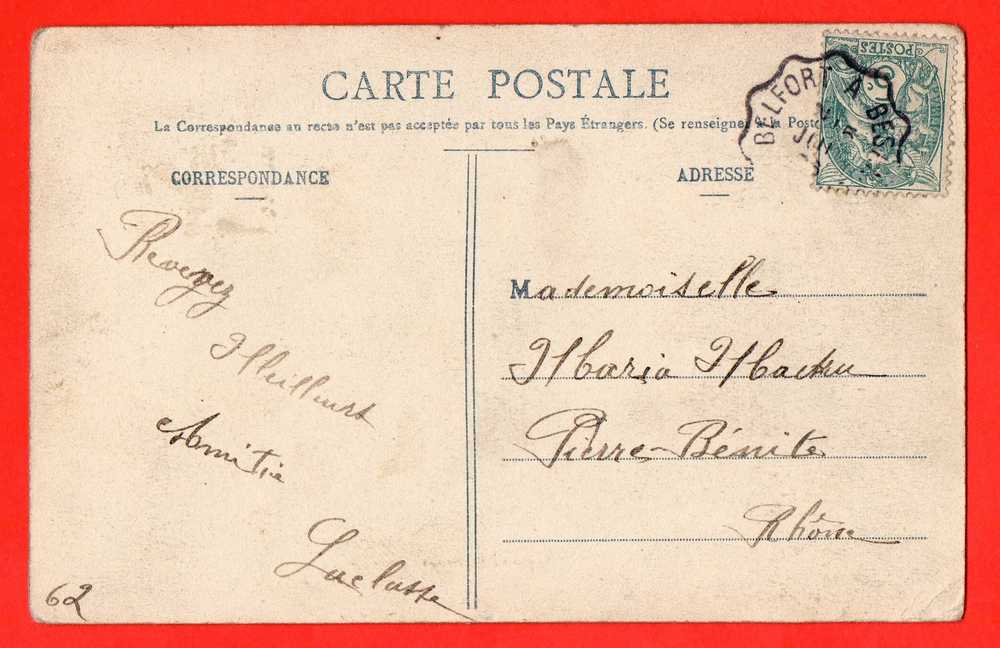 CARTE POSTALE
La Correspondance au recto n'est pas acceptée par tous les Pays Étrangers. (Se renseigner à la Poste
CORRESPONDANCE
Recevez
Meilleurs
Amitié
62
ADRESSE
Mademoiselle
Maria
Pierre-Bénite
Rhône
POSTES
BELFORT A BES